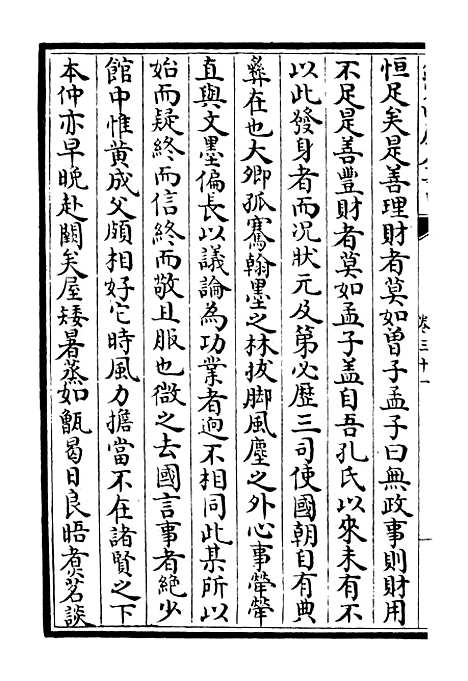 卷三十一
恒足矣是善理財者莫如曾子孟子曰無政事則財用
不足是善豐財者莫如孟子盖自吾孔氏以來未有不
以此發身者而况狀元及第必歷三司使國朝自有典
彝在也大卿孤騫翰墨之林拔脚風塵之外心事犖犖
直與文墨偏長以議論為功業者逈不相同此某所以
始而疑終而信終而敬且服也㣲之去國言事者絶少
館中惟黄成父頗相好它時風力擔當不在諸賢之下
本仲亦早晚赴闕矣屋矮暑蒸如甑曷日良晤煮茗談